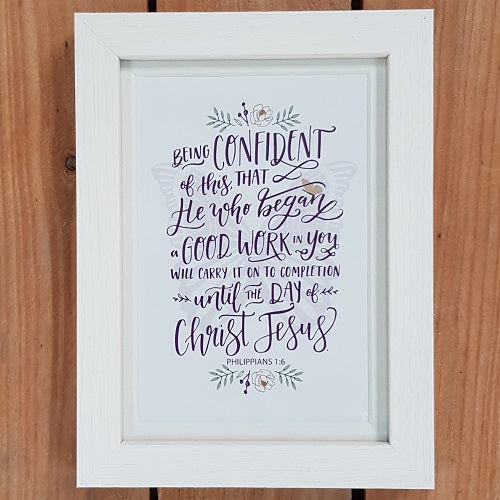 BEING CONFIDENT
of this, THAT
He who began
a GOOD WORK IN you
WILL CARRY IT ON TO COMPLETION
until THE DAY of
Christ Jesus.
PHILIPPIANS 1:6